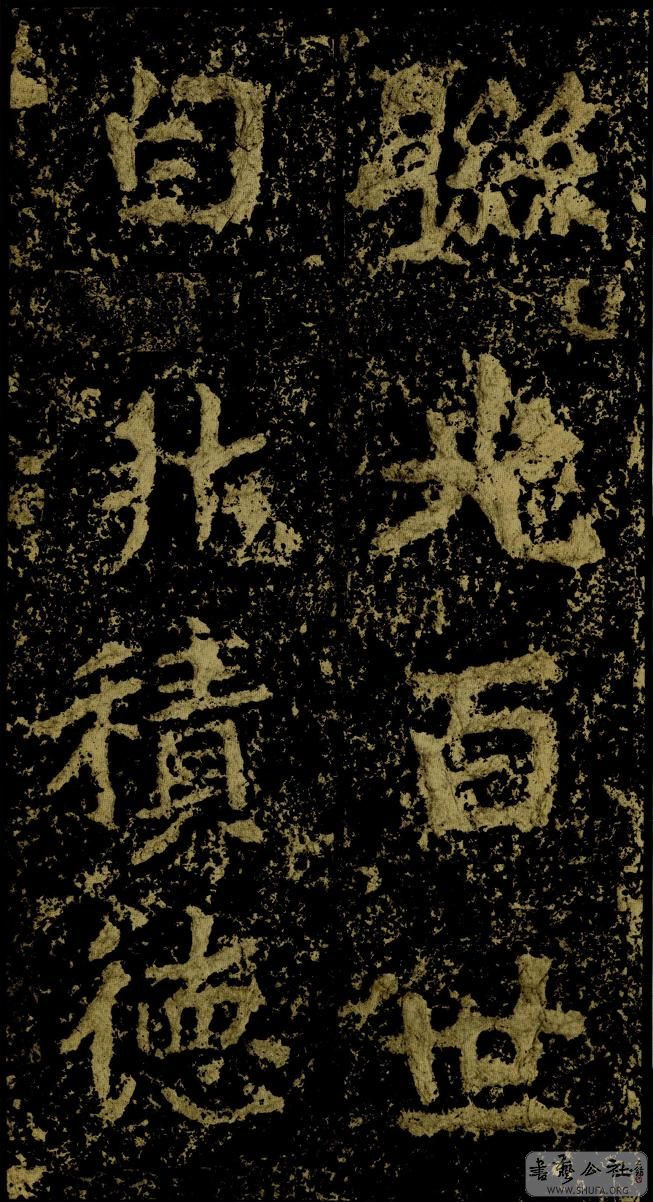 聯光百世
自非積德
書藝公社
WWW.SHUFA.ORG